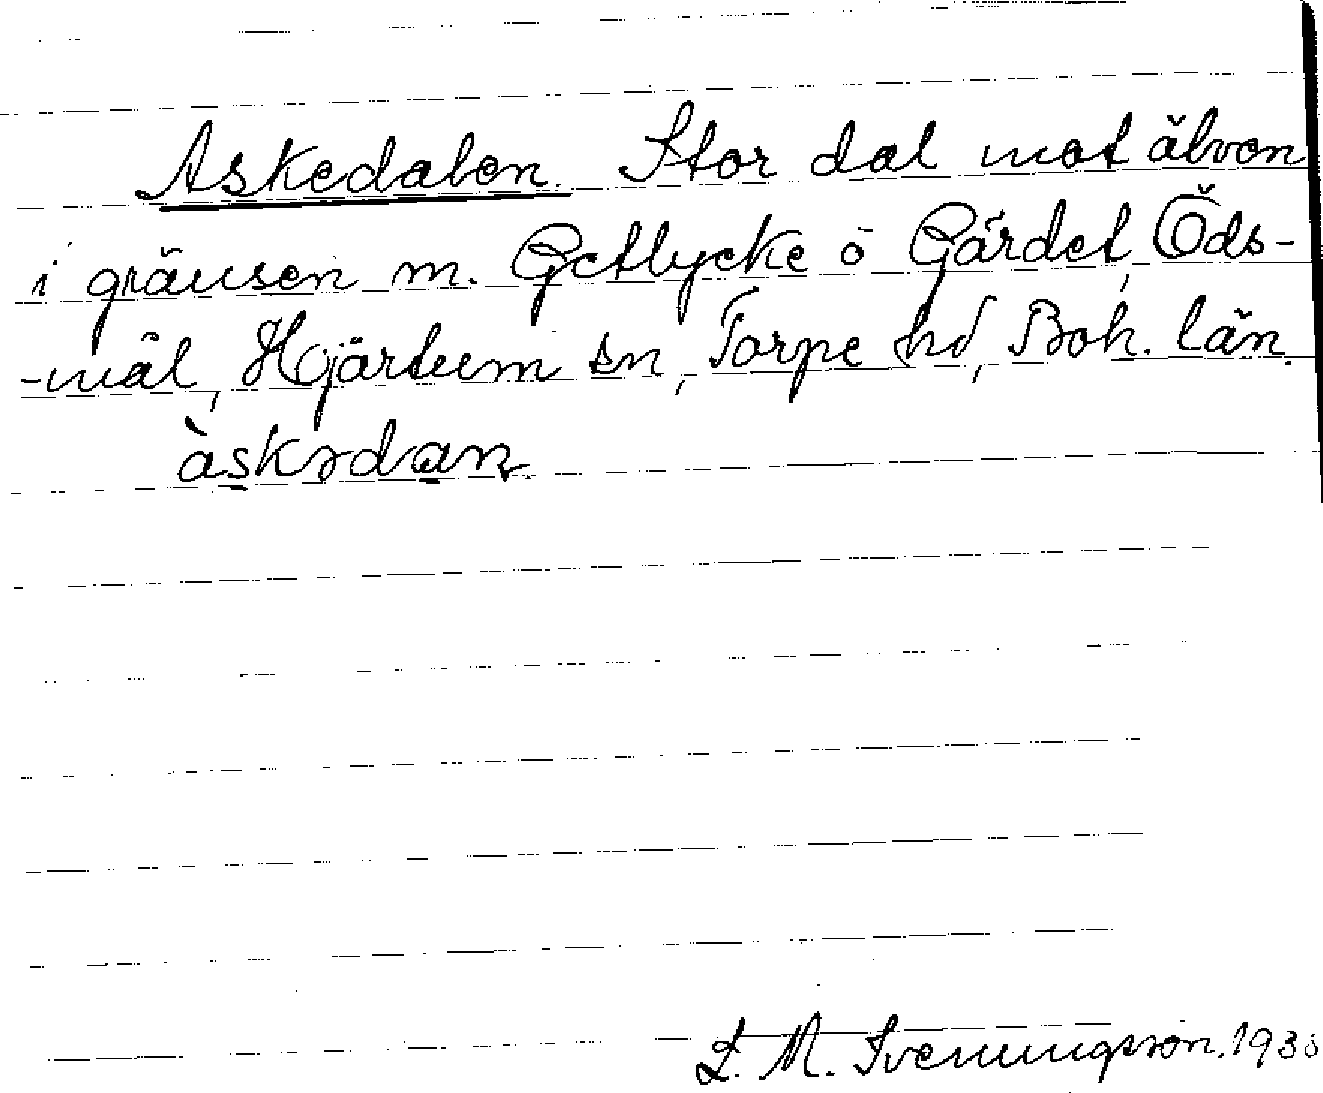 Askedalen. Stor dal mot älven
i gränsen m. Getlycke o Gärdet, Öds-
-mål, Hjärtum sn, Torpe hd, Boh. län.
àskədan
L. M. Svenungsson.